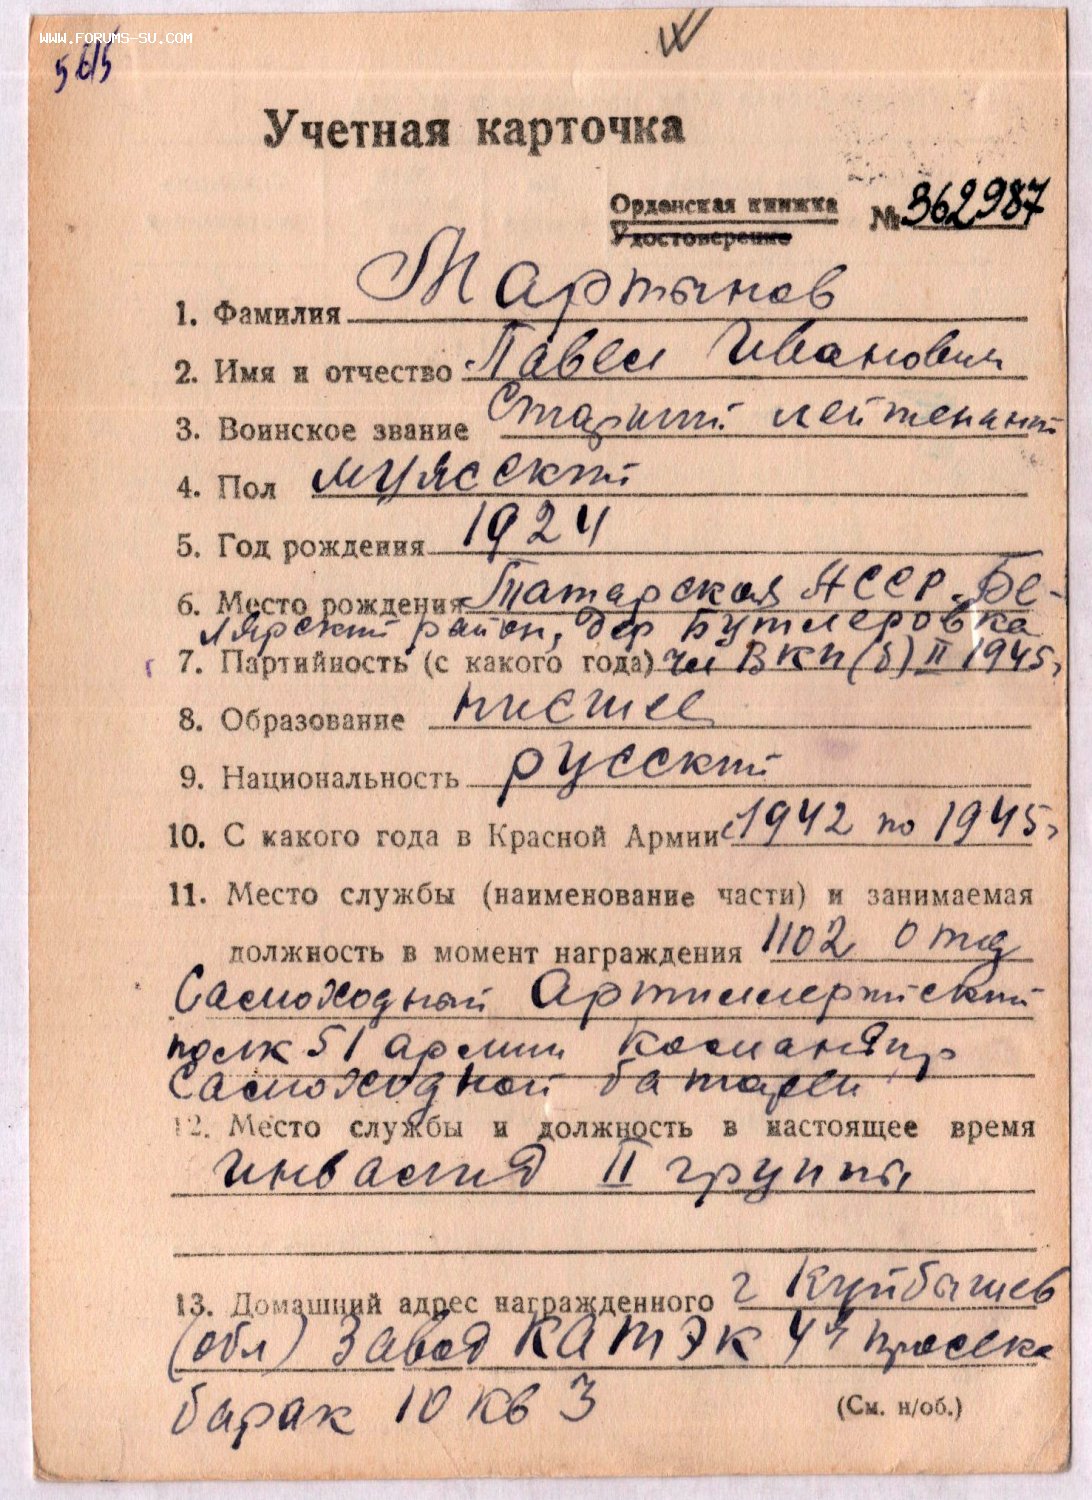 WWW.FORUMS-SU.COM
5615
Учетная карточка
Орденская книжка
Удостоверение
№ 362987
1. Фамилия Мартынов
2. Имя и отчество Павел Иванович
3. Воинское звание Старший лейтенант
4. Пол мужской
5. Год рождения 1924
6. Место рождения Татарская АССР. Бе-
лярский район, дер Бутлеровка
7. Партийность (с какого года) чл ВКП(б) II 1945г
8. Образование низшее
9. Национальность русский
10. С какого года в Красной Армии с 1942 по 1945г
11. Место службы (наименование части) и занимаемая
должность в момент награждения 1102 отд
Самоходный Артиллерийский
полк 51 армии командир
Самоходной батареи
12. Место службы и должность в настоящее время
инвалид II группы
13. Домашний адрес награжденного г Куйбышев
(обл) Завод КАТЭК 4я просека
барак 10 кв 3
(См. н/об.)